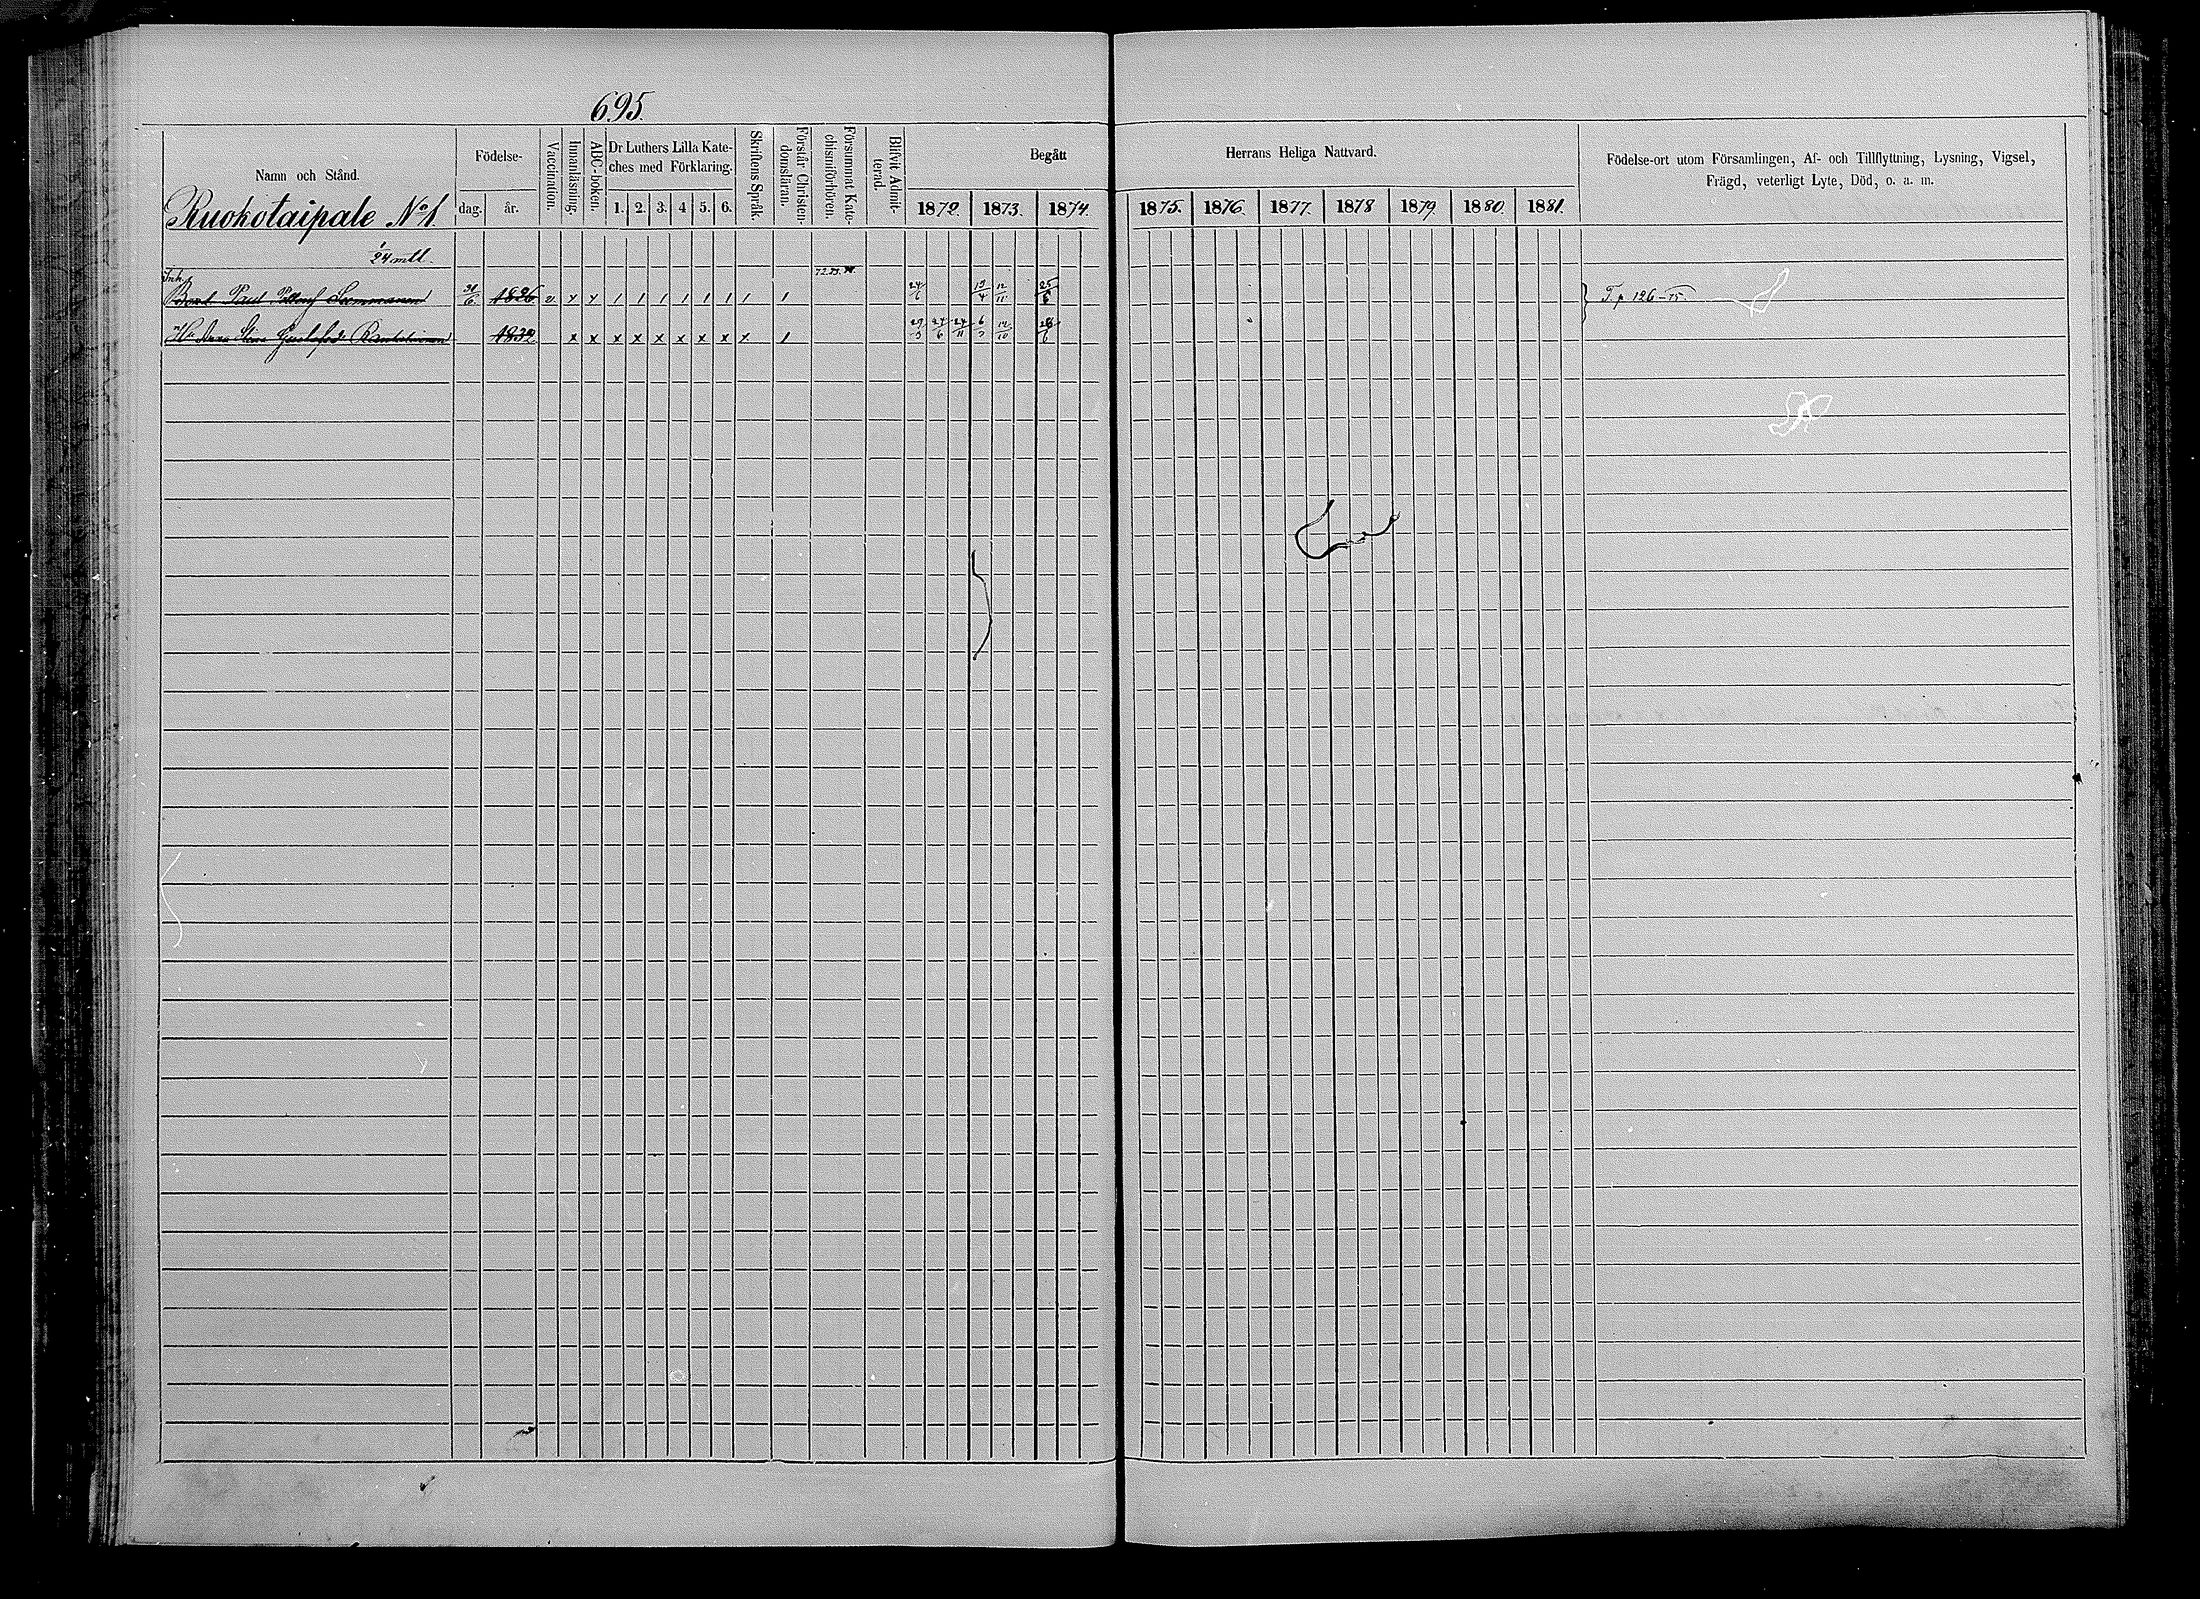 695.
Namn och Stånd.
Födelse-
dag.
år.
Vaccination.
Innanläsning.
ABC-boken.
Dr Luthers Lilla Kate-
ches med Förklaring.
1. 2. 3. 4 5. 6.
Skriftens Språk.
Förstår Christen-
domsläran.
Försummat Kate-
chismiförhören.
Blifvit Admit-
terad.
Begått
Herrans Heliga Nattvard.
1872. 1873. 1874. 1875. 1876. 1877. 1878 1879. 1880. 1881.
Födelse-ort utom Församlingen, Af- och Tillflyttning, Lysning, Vigsel,
Frägd, veterligt Lyte, Död, o. a. m.
Ruokotaipale No 1.
1/24 mtl.
72.73.
Inh.
Paul 1826 v. x x 1 1 1 1 1 1 1 1 24/6 13/4 12/11 25/6 T. p 126–75.
Hu Anna Stina Gustafsdr 1832 x x x x x x x x x 1 24/6 24/11 12/10